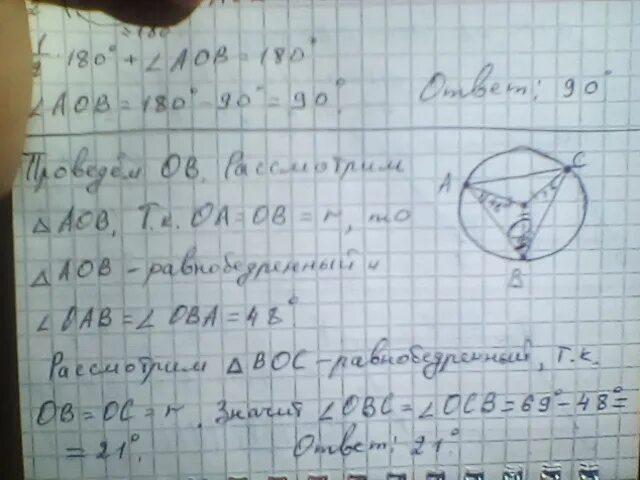 = 180°
1/2 · 180° + ∠AOB = 180°
∠AOB = 180° - 90° = 90°. Ответ: 90°
Проведём OB. Рассмотрим
△AOB, Т.к. OA = OB = r, то
△AOB - равнобедренный и
∠OAB = ∠OBA = 48°
Рассмотрим △BOC - равнобедренный, т.к.
OB = OC = r. Значит ∠OBC = ∠OCB = 69° - 48° =
= 21°. Ответ: 21°.
A
C
B